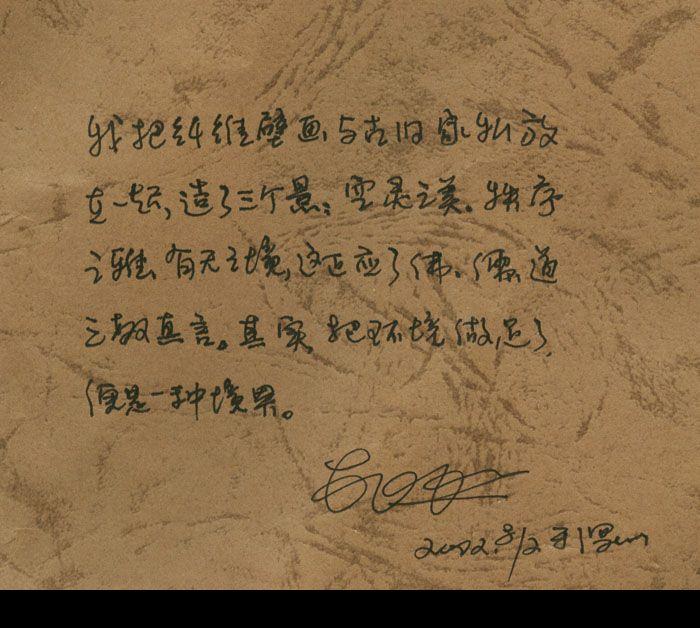 我把纤维壁画与古旧家私放
在一起,造了三个景:空灵之美、秩序
之雅、有无之境,这正应了佛、儒、道
三教真言。其实,把环境做足了,
便是一种境界。
2002.8/2 于